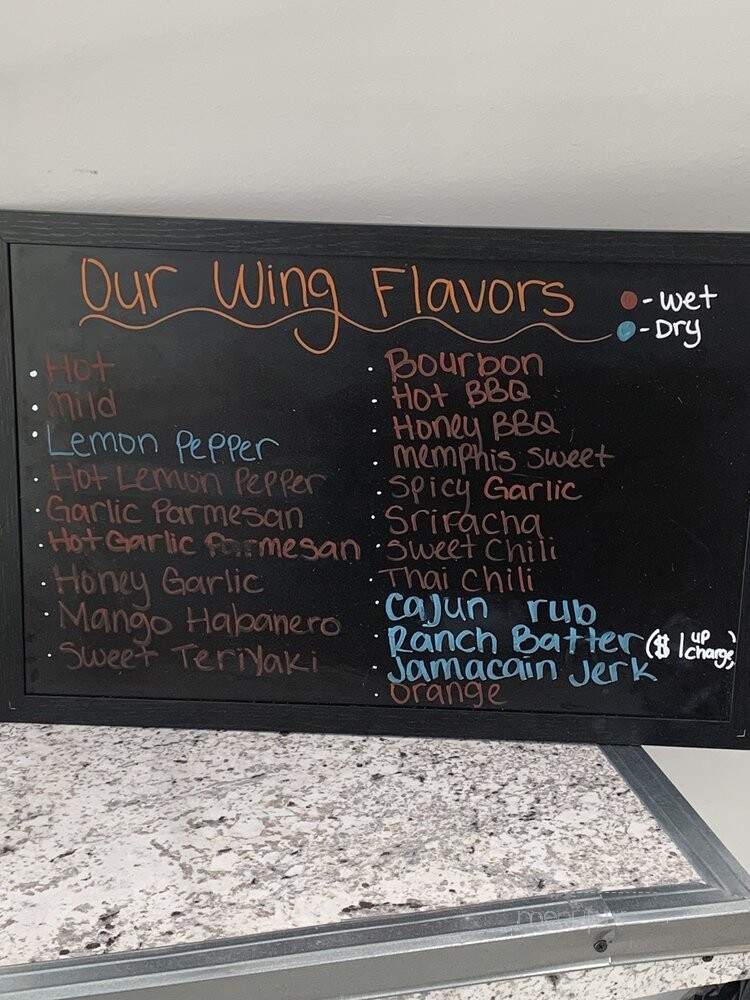 Our Wing Flavors
- wet
- Dry
• Hot
• Mild
• Lemon Pepper
• Hot Lemon Pepper
• Garlic Parmesan
• Hot Garlic Parmesan
• Honey Garlic
• Mango Habanero
• Sweet Teriyaki
• Bourbon
• Hot BBQ
• Honey BBQ
• memphis sweet
• Spicy Garlic
• Sriracha
• Sweet Chili
• Thai Chili
• Cajun rub
• Ranch Batter ($1 up charge)
• Jamacain Jerk
• Orange